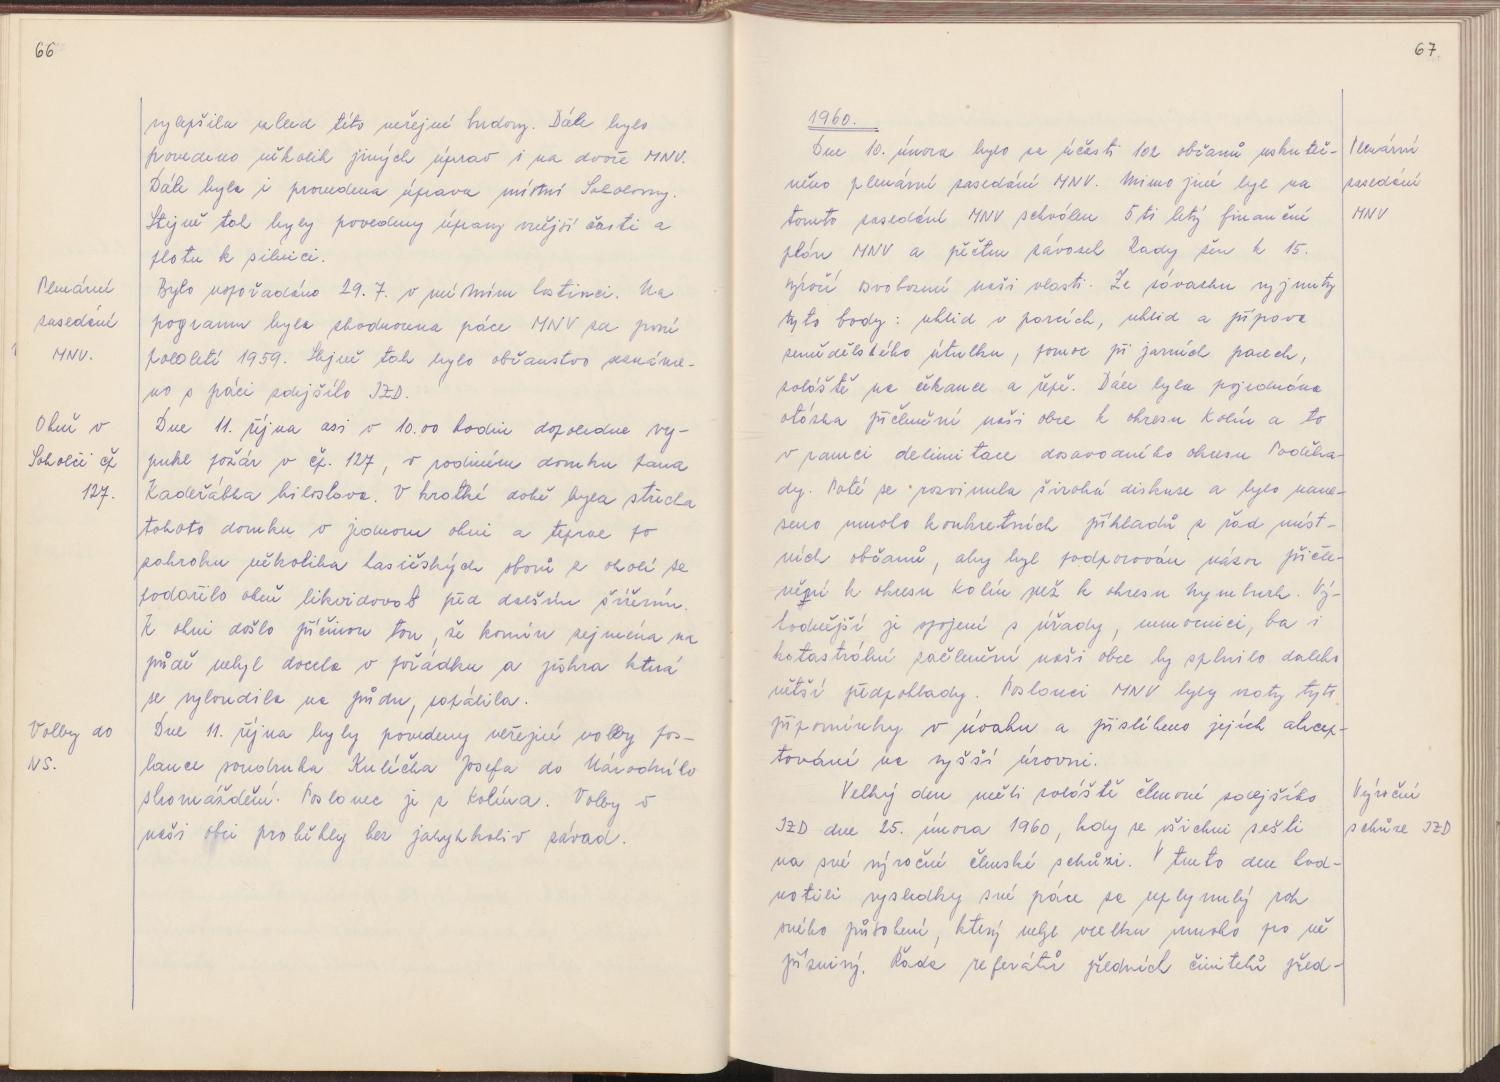 66
vylepšila vzhled této veřejné budovy. Dále bylo
povedeno několik jiných úprav i na dvoře MNV.
Dále byla i provedena úprava místní Sokolovny.
Stejně tak byly povedeny úpravy vnější části a
plotu k silnici.
Plenární
zasedání
MNV.
Bylo uspořádáno 29. 7. v místním hostinci. Na
pogramu byla zhodnocena práce MNV za první
pololetí 1959. Stejně tak bylo občanstvo seznáme-
no s prácí zdejšího JZD.
Oheň v
Sokolči čp
127.
Dne 11. října asi v 10.00 hodin dopoledne vy-
pukl požár v čp. 127, v rodinném domku pana
Kadeřábka Miloslava. V krátké době byla střecha
tohoto domku v jednom ohni a teprve po
zákroku několika hasičských sborů z okolí se
podařilo oheň likvidovat před dalším šířením.
K ohni došlo příčinou tou, že komín zejména na
půdě nebyl docela v pořádku a jiskra která
se vyloudila na půdu, zapálila.
Volby do
NS.
Dne 11. října byly povedeny veřejné volby pos-
lance soudruha Kulícha Josefa do Národního
shromáždění. Poslanec je z Kolína. Volby v
naší obci proběhly bez jakýkkoliv závad.
67
1960.
Plenární
zasedání
MNV
Dne 10. února bylo za účasti 102 občanů uskuteč-
něno plenární zasedání MNV. Mimo jiné byl na
tomto zasedání MNV schválen 5ti letý finanční
plán MNV a přečten závazek Rady žen k 15.
výročí osvobození naší vlasti. Ze závazku vyjmuty
tyto body: úklid v parcích, úklid a přípava
zemědělského útulku, pomoc při jarních pacech,
zvláště na čekance a řepě. Dále byla projednána
otázka přičlenění naší obce k okresu Kolín a to
v rámci delimitace dosavadního okresu Poděbra-
dy. Poté se rozvinula široká diskuse a bylo nane-
seno mnoho konkretních příkladů z řad míst-
ních občanů, aby byl podporován názor přičle-
nění k okresu Kolín než k okresu Nymburk. Vý-
hodnější je spojení s úřady, nemocnicí, ba i
katastrální začlenění naší obce by splnilo daleko
větší předpoklady. Poslanci MNV byly vzaty tyto
připomínky v úvahu a přislíbeno jejich akcep-
tování na vyšší úrovni.
Výroční
schůze JZD
Velký den měli zvláště členové zdejšího
JZD dne 25. února 1960, kdy se všichni sešli
na své výroční členské schůzi. V tento den hod-
notili výsledky své práce za uplynulý rok
svého působení, který nebyl vcelku mnoho po ně
příznivý. Řada referátů předních činitelů před-